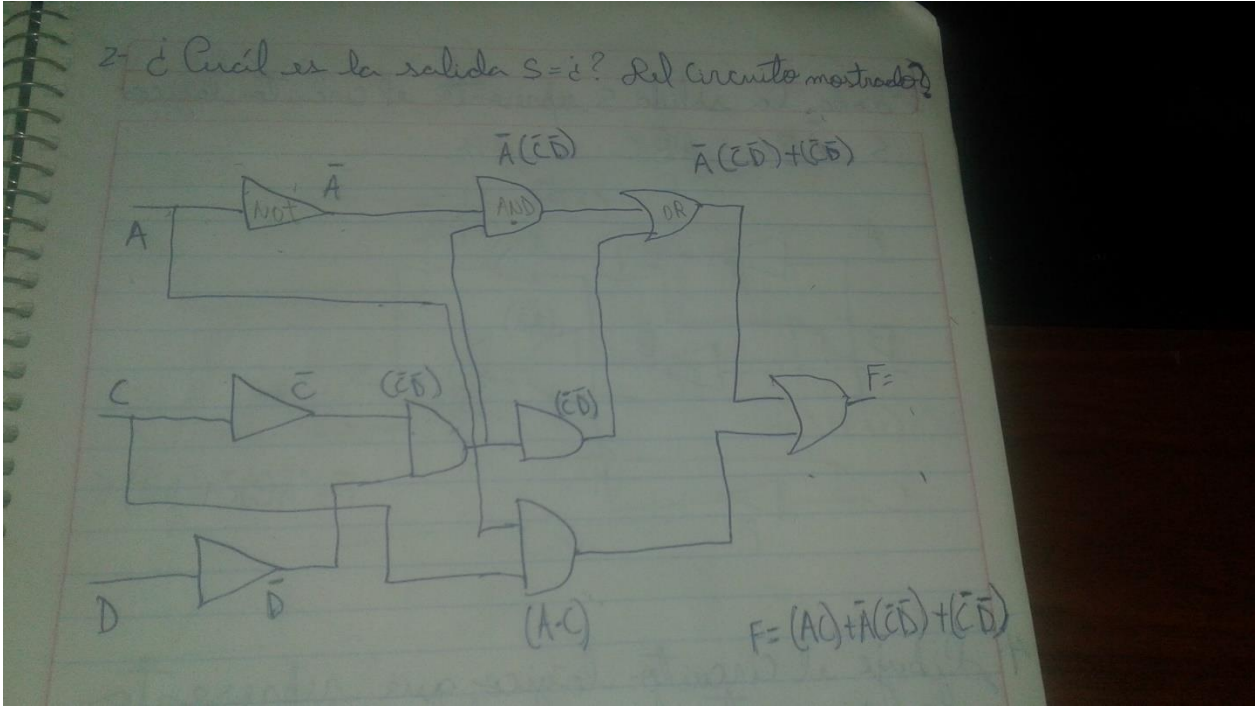 2- ¿ Cuál es la salida S=¿? del circuito mostrado?
Ā(C̄D̄)
Ā(C̄D̄)+(C̄D̄)
Ā
NOT
AND
OR
A
C
C̄
(C̄D̄)
(C̄D̄)
F=
D
D̄
(A·C)
F= (AC)+Ā(C̄D̄)+(C̄D̄)